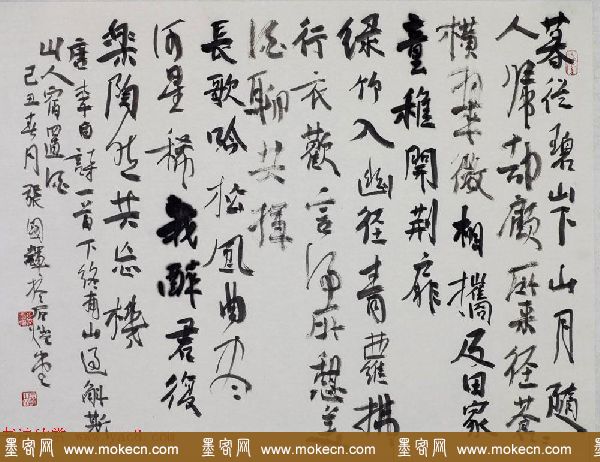 暮從碧山下山月隨
人歸却顧所來径蒼
橫翠微相攜及田家
童稚開荆扉
绿竹入幽径青蘿拂
行衣歡言得所憩美
酒聊共揮
長歌吟松風曲尽
河星稀我醉君復
樂陶然共忘機
唐李白詩一首下終南山過斛斯
山人宿置酒
己丑春月張國輝於石堂
墨客网 www.mokecn.com 墨客网 www.mokecn.com 墨客网 www.mokecn.com 墨客网 www.mokecn.com